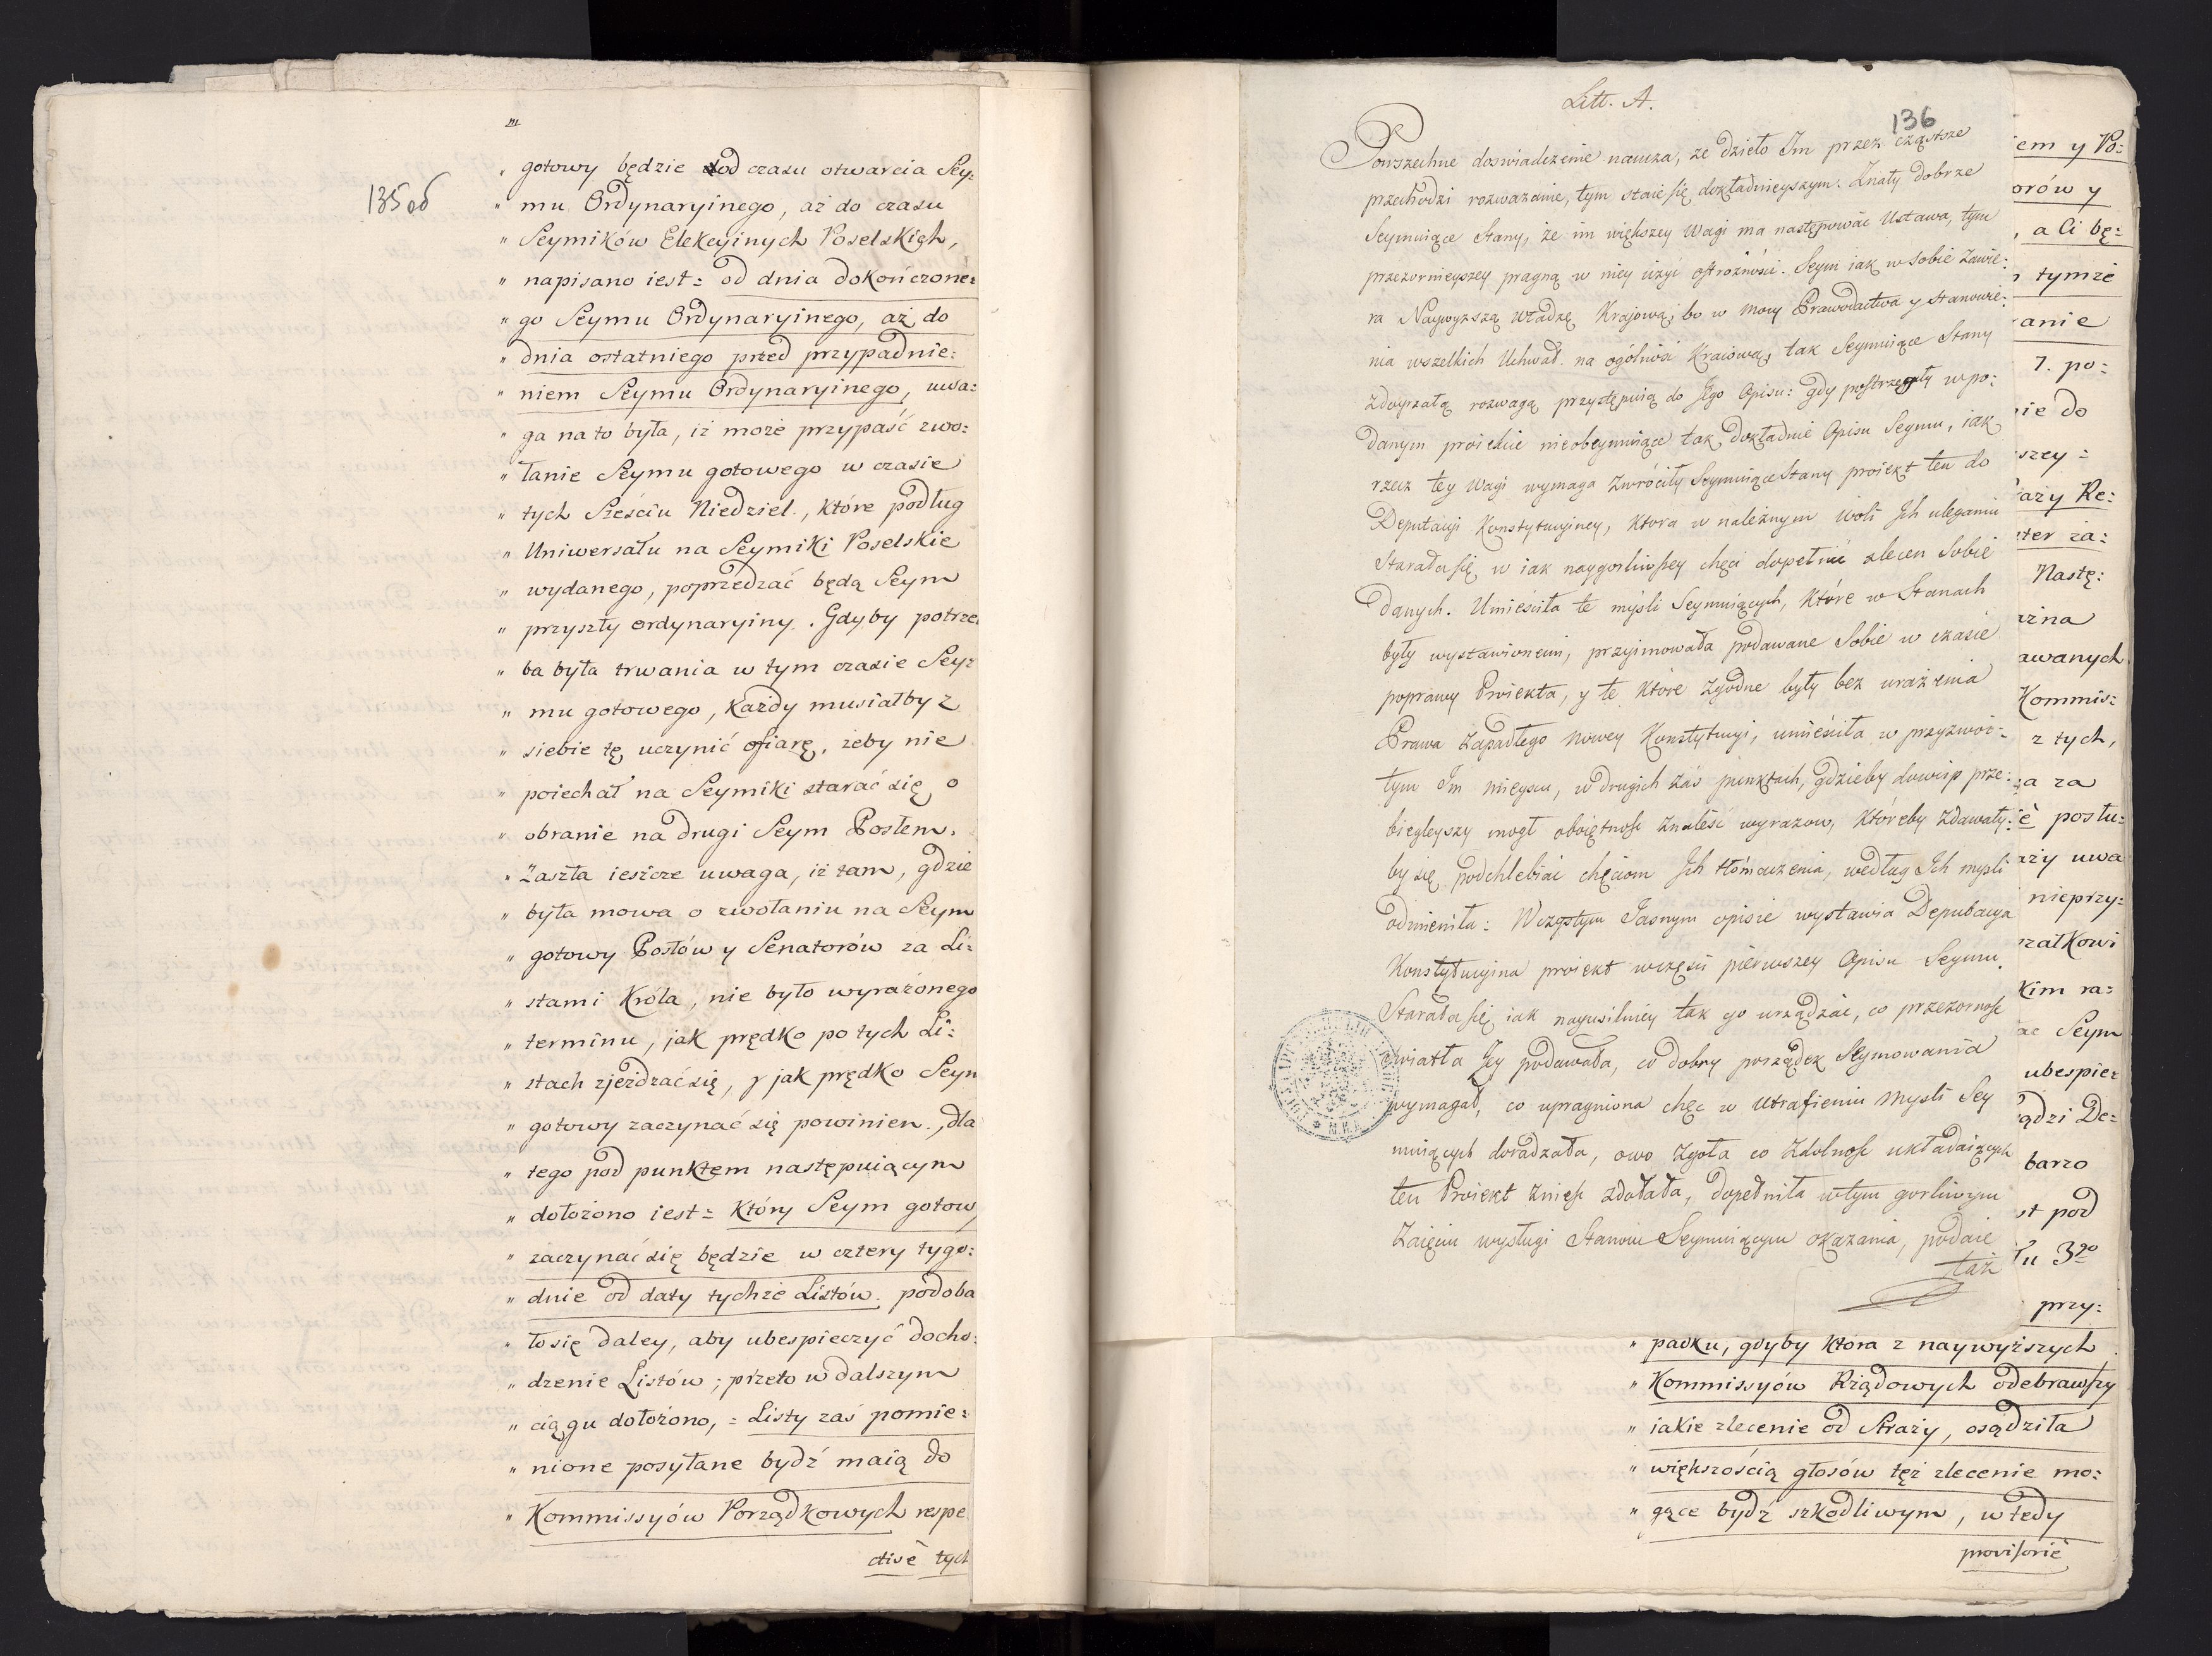 135 об
„ gotowy będzie od czasu otwarcia Sey:
„ mu Ordynaryinego, aż do czasu
„ Seymików Elekcyinych Poselskich,
„ napisano iest = od dnia dokończone:
„ go Seymu Ordynaryinego, aż do
„ dnia ostatniego przed przypadnie:
„ niem Seymu Ordynaryinego, uwa:
„ ga na to była, iż może przypaść zwo:
„ łanie Seymu gotowego w czasie
„ tych Sześciu Niedziel, które podług
„ Uniwersału na Seymiki Poselskie
„ wydanego, poprzedzać będą Seym
„ przyszły ordynaryiny. Gdyby potrze:
„ ba była trwania w tym czasie Sey:
„ mu gotowego, każdy musiałby z
„ siebie tę uczynić ofiarę, żeby nie
„ poiechał na Seymiki starać się o
„ obranie na drugi Seym Posłem.
„ Zaszła ieszcze uwaga, iż tam, gdzie
„ była mowa o zwołaniu na Seym
„ gotowy Posłów y Senatorów za Li:
„ stami Króla, nie było wyrażonego
„ terminu, jak prędko po tych Li:
„ stach zjeżdzać się, y jak prędko Seym
„ gotowy zaczynać się powinien, dla
„ tego pod punktem następuiącym
„ dołożono iest = Który Seym gotowy
„ zaczynać się będzie w cztery tygo:
„ dnie od daty tychże Listów. podoba
„ ło się daley, aby ubespieczyć docho:
„ dzenie Listów; przeto w dalszym
„ ciągu dołożono, = Listy zaś pomie:
„ nione posyłane bydź maią do
„ Kommissyów Porządkowych respe
ctivè tych
Litt. A.
136
Powszechne doswiadczenie naucza, ze dzieło Im przez częstsze
przechodzi rozwazanie, tym staie się dokładnieyszym. Znały dobrze
Seymuiące Stany, że im większey Wagi ma następować Ustawa, tym
przezornieyszey pragną w niey użyć ostrożności. Seym iak w sobie zawie:
ra Naywyzszą władzę Krajową, bo w mocy Prawodactwa y stanowie:
nia wszelkich Uchwał na ogólność Kraiową, tak Seymuiące Stany
z doyrzałą rozwagą przystępuią do Jego Opisu: gdy postrzegły w po:
danym proiekcie nieobeymuiące tak dokładnie Opisu Seymu, iak
rzecz tey wagi wymaga zwróciły Seymuiące Stany proiekt ten do
Deputacyi Konstytucyiney, która w należnym woli Ich uleganiu
starała się w iak naygorliwszey chęci dopełnić zlecen Sobie
danych. Umieściła te myśli Seymuiących, które w Stanach
były wystawionemi, przyimowała podawane Sobie w czasie
poprawy Proiekta, y te które zgodne były bez urażenia
Prawa zapadłego nowey Konstytucyi, umieściła w przyzwoi:
tym Im mieyscu, w drugich zaś punktach, gdzieby dowcip prze:
biegleyszy mogł oboiętność znaleść wyrazow, któreby zdawały:
by się podchlebiać chęciom Ich tłómaczenia, według Ich myśli
odmieniła: W czystym Jasnym opisie wystawia Deputacya
Konstytucyina proiekt w części pierwszey Opisu Seymu.
Starała się iak nayusilniey tak go urządzać, co przezorność
światła Jey podawała, co dobry porządek Seymowania
wymagał, co upragniona chęć w utrafieniu myśli Sey
muiących doradzała, owo zgoła co zdolność układaiących
ten Proiekt znieść zdołała, dopełniła w tym gorliwym
zaięciu wysługi Stanom Seymuiącym okazania, podaie
taż
iem y Po:
orów y
, a Ci bę:
tymże
anie
7. po:
ie do
szey =
aży Re:
ster za:
Nastę:
żna
awanych
Kommis:
z tych,
a za
è posłu:
aży uwa
nieprzy:
załkowi
kim ra:
ac Seym
ubespie:
ądzi De:
barzo
st pod
łu 3go
przy:
„ padku, gdyby która z naywyższych
„ Kommissyów Rządowych odebrawszy
„ iakie zlecenie od Straży, osądziła
„ większością głosów też zlecenie mo:
„ gące bydź szkodliwym, wtedy
provisoriè